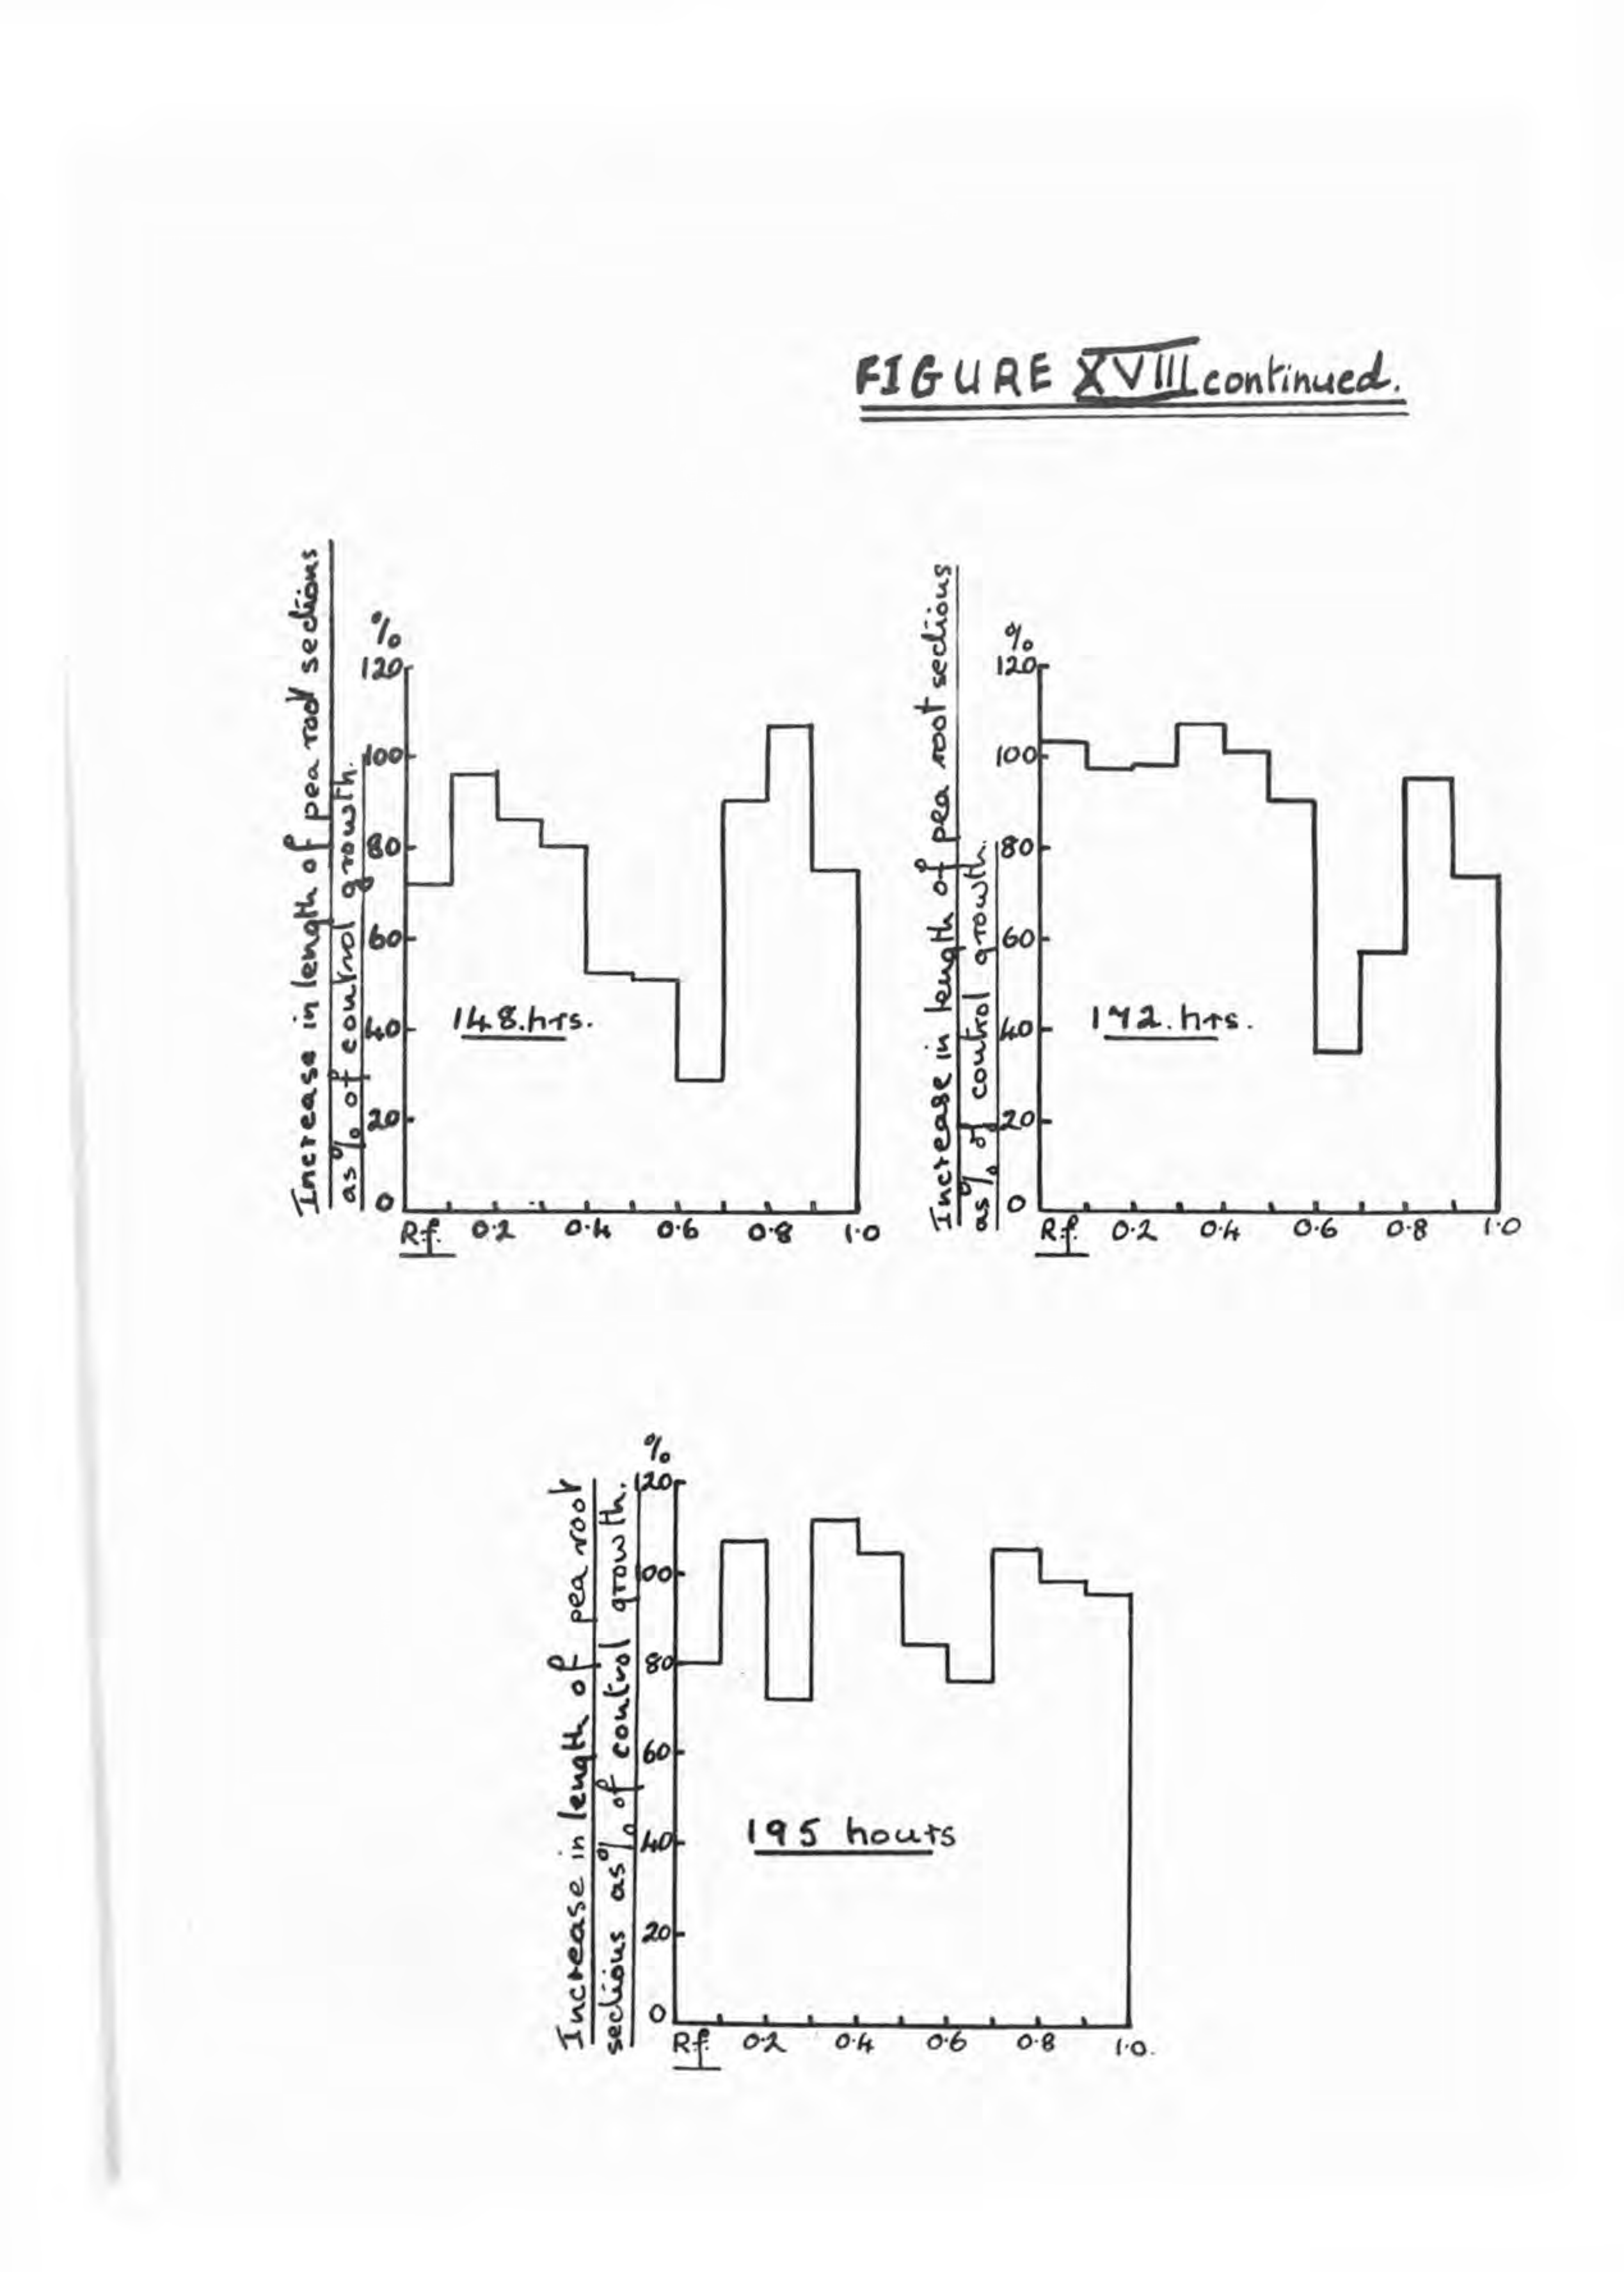 FIGURE XVIII continued.
Increase in length of pea root sections
as % of control growth.
%
120
100
80
60
40
20
0
148.hrs.
R.f. 0.2 0.4 0.6 0.8 1.0
Increase in length of pea root sections
as % of control growth.
%
120
100
80
60
40
20
0
172.hrs.
R.f. 0.2 0.4 0.6 0.8 1.0
Increase in length of pea root
sections as % of control growth.
%
120
100
80
60
40
20
0
195 hours
R.f. 0.2 0.4 0.6 0.8 1.0.